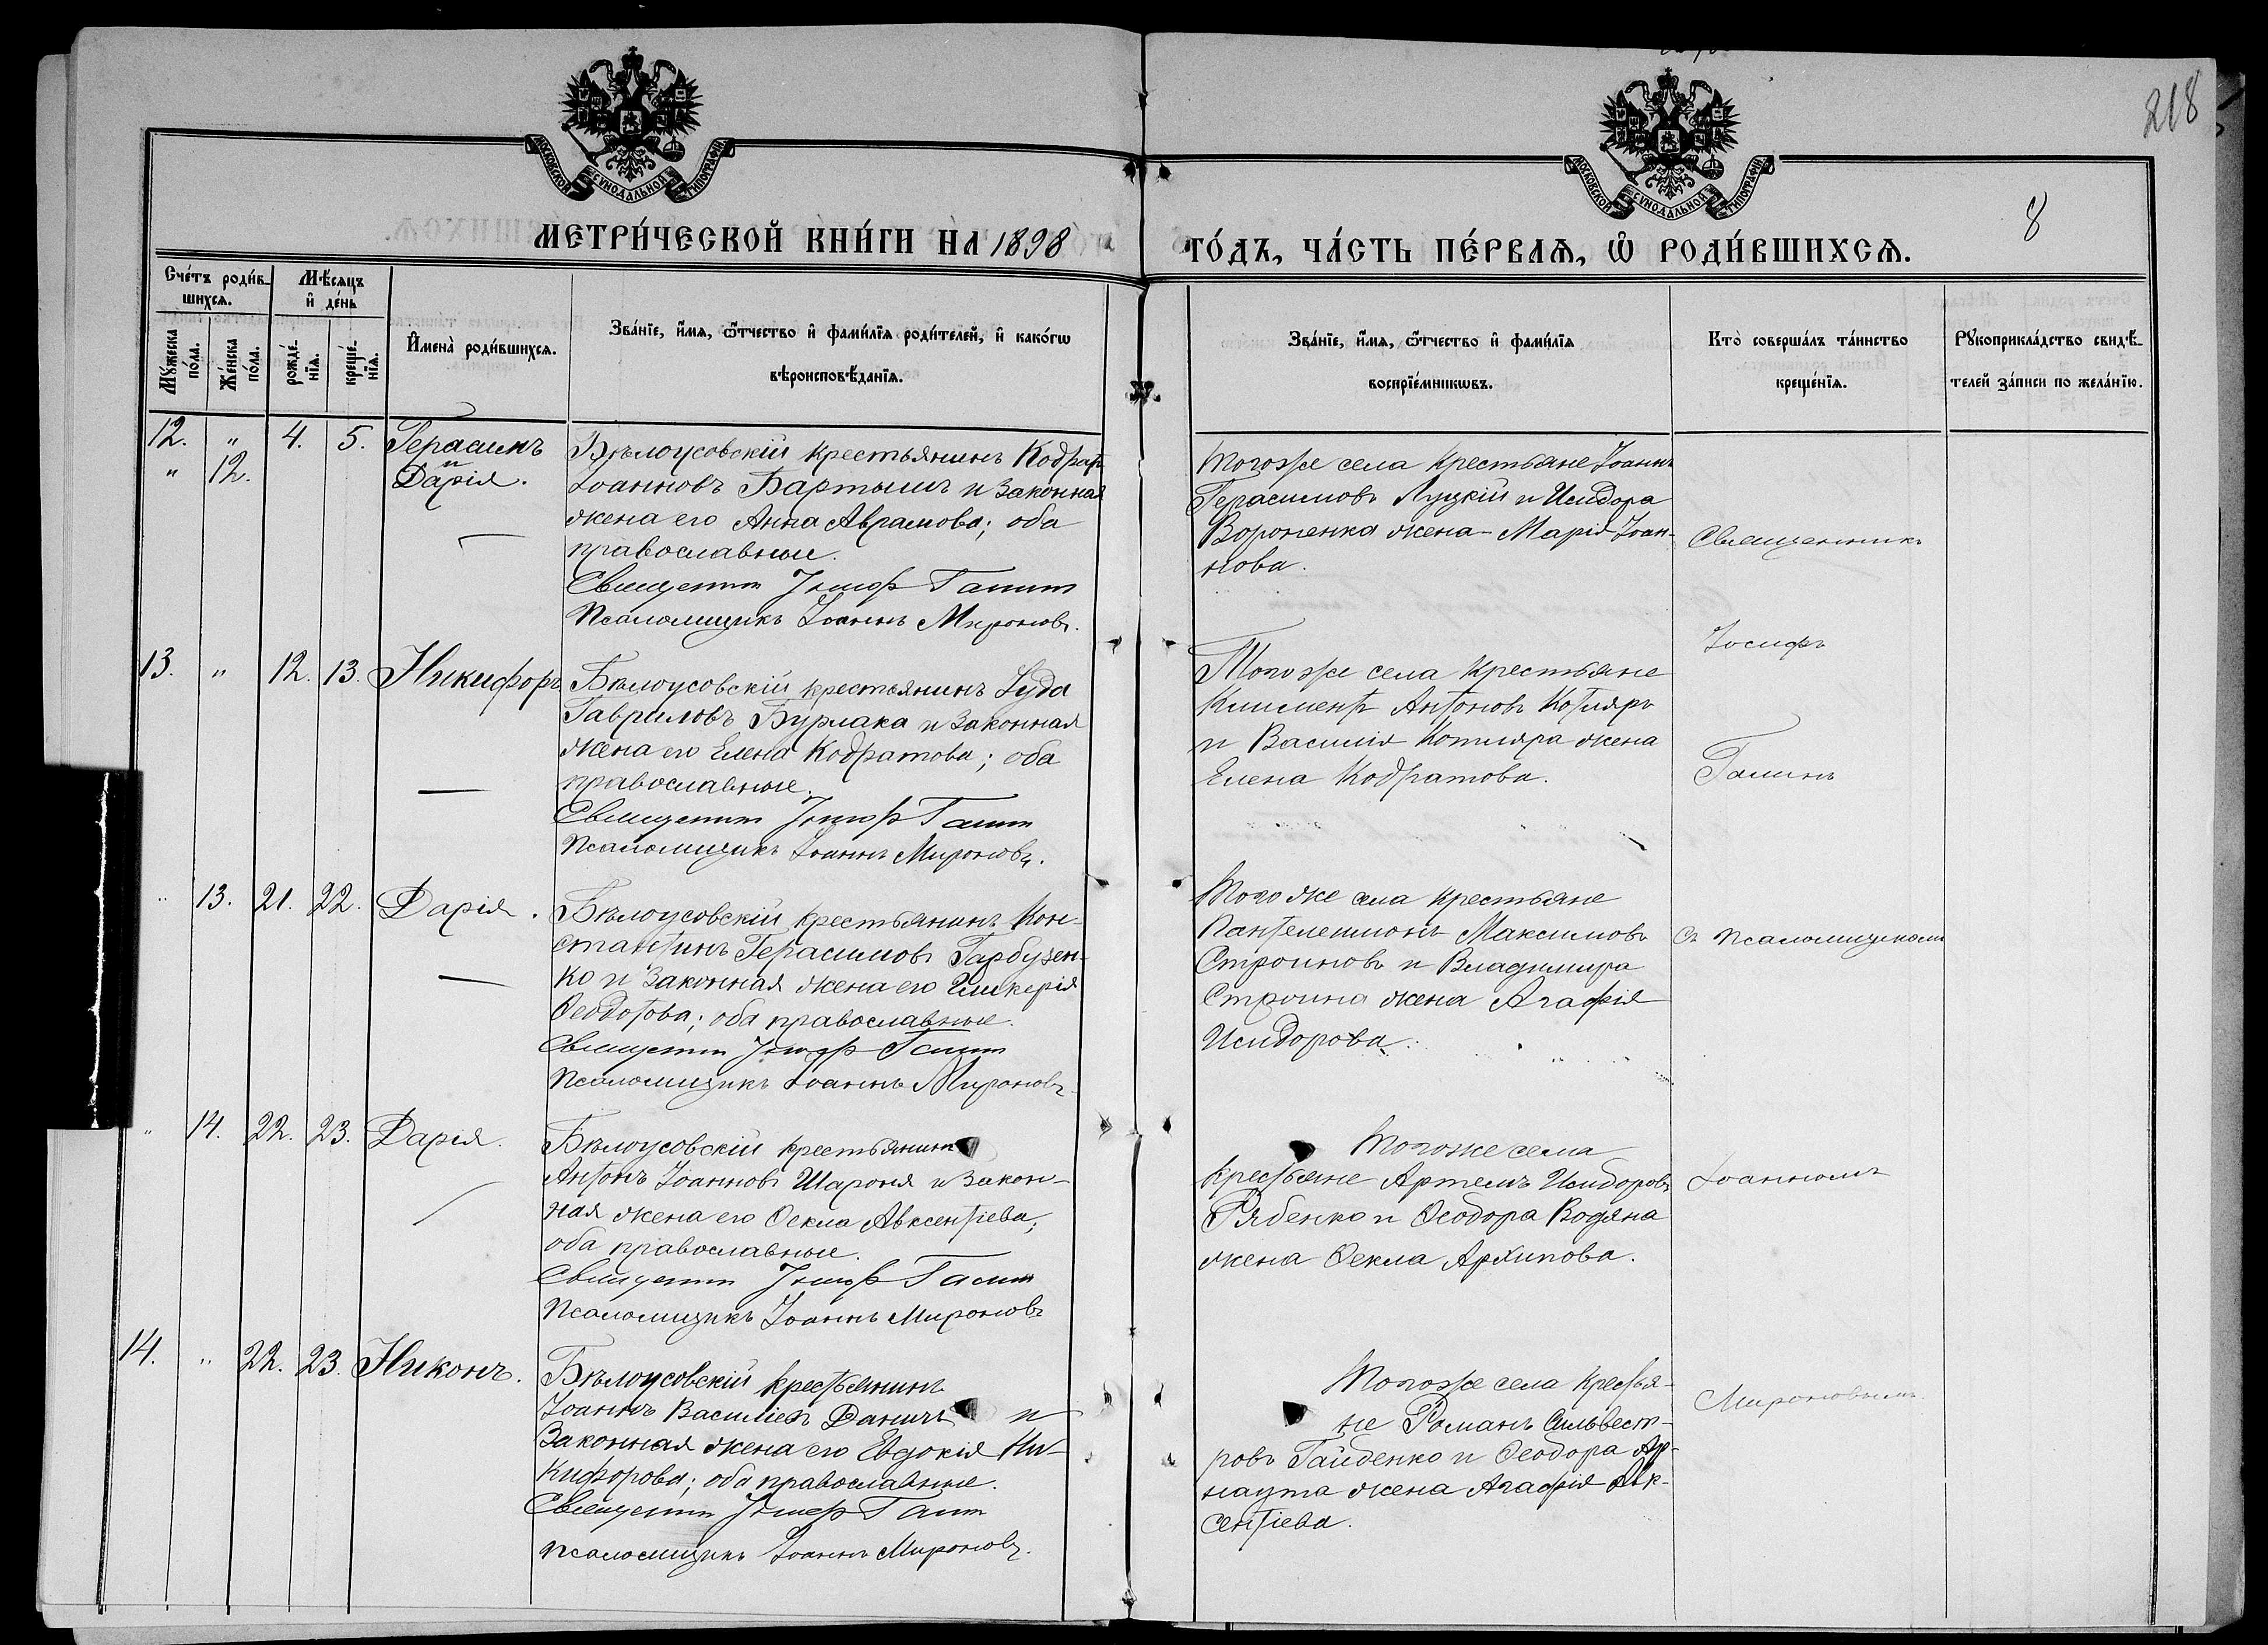 218
МОСКОВСКОЙ СѴНОДАЛЬНОЙ ТИПОГРАФІИ
МОСКОВСКОЙ СѴНОДАЛЬНОЙ ТИПОГРАФІИ
8
МЕТРИ́ЧЕСКОЙ КНИ́ГИ НА 1898
ГО́ДЪ, ЧА́СТЬ ПЕ́РВАЯ, Ѡ РОДИ́ВШИХСЯ.
Сче́тъ роди́в-
шихся.
Мѣ́сяцъ
и де́нь
Му́жеска по́ла.
Же́нска по́ла.
рожде́нїя.
креще́нїя.
Имена̀ роди́вшихся.
Зва́нїе, и́мя, ѻ́тчество и фами́лїя роди́телей, и како́гѡ
вѣроисповѣ́данїя.
Зва́нїе, и́мя, ѻ́тчество и фами́лїя
воспрїе́мникѡвъ.
Кто̀ соверша́лъ та́инство
креще́нїя.
Рꙋкоприкла́дство свидѣ́-
телей за́писи по жела́нїю.
12. " 4. 5. Герасимъ
" 12. и
Дарія.
Бѣлоусовскій крестьянинъ Кодратъ
Іоанновъ Бартышъ и законная
жена его Анна Аврамова; оба
православные.
Священник Іосиф Галин
Псаломщикъ Іоаннъ Мироновъ.
Тогоже села крестьяне Іоаннъ
Герасимовъ Луцкій и Исидора
Вороненка жена Марія Іоан-
нова.
Священникъ
Іосифъ
13. " 12. 13. Никифоръ
Бѣлоусовскій крестьянинъ Іуда
Гавриловъ Бурлака и законная
жена его Елена Кодратова; оба
православные.
Священник Іосиф Галин
Псаломщикъ Іоаннъ Мироновъ.
Тогоже села крестьяне
Климентъ Антоновъ Котляръ
и Василія Котляра жена
Елена Кодратова.
Галинъ
" 13. 21. 22. Дарія.
Бѣлоусовскій крестьянинъ Кон-
стантинъ Герасимовъ Гарбузен-
ко и законная жена его Гликерія
Ѳеодотова; оба православные.
Священник Іосиф Галин
Псаломщикъ Іоаннъ Мироновъ
Тогоже села крестьяне
Пантелеимонъ Максимовъ
Строиновъ и Владимира
Строина жена Агафія
Исидорова.
съ псаломщикомъ
" 14. 22. 23. Дарія.
Бѣлоусовскій крестьянинъ
Антонъ Іоанновъ Шароня и закон-
ная жена его Ѳекла Авксентіева;
оба православные.
Священник Іосиф Галин
Псаломщикъ Іоаннъ Мироновъ
Тогоже села
крестьяне Артемъ Исидоровъ
Рябенко и Ѳеодора Водяна
жена Ѳекла Архипова.
Іоанномъ
14. " 22. 23. Никонъ.
Бѣлоусовскій крестьянинъ
Іоаннъ Василіевъ Даничъ и
законная жена его Евдокія Ни-
кифорова; оба православные.
Священник Іосиф Галин
псаломщикъ Іоаннъ Мироновъ.
Тогоже села крестья-
не Романъ Сильвест-
ровъ Гайденко и Ѳеодора Ар-
наута жена Агафія Авк-
сентіева.
Мироновымъ